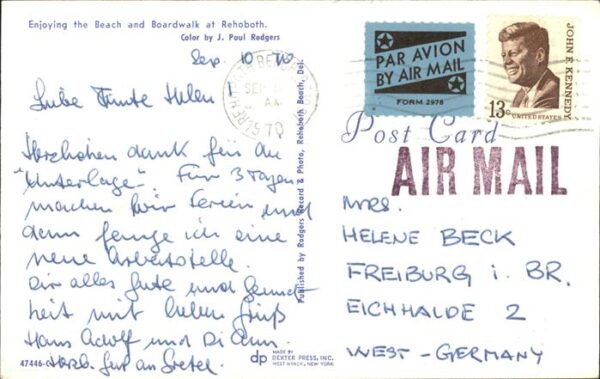 Enjoying the Beach and Boardwalk at Rehoboth.
Color by J. Paul Rodgers
Sep. 10 70
Liebe Tante Helen!
Herzlichen dank für die
"Unterlage". Für 3 Tagen
machen wir Ferien und
dann fange ich eine
neue Arbeitstelle.
Dir alles Gute und Gesund-
heit mit lieben Gruß
Hans Adolf und Di Ann.
Herb. Gruß an Gretel.
47446-
Published by Rodgers Record & Photo, Rehoboth Beach, Del.
dp
MADE BY
DEXTER PRESS, INC.
WEST NYACK, NEW YORK
REHOBOTH BEACH
SEP
AM
1970
PAR AVION
BY AIR MAIL
FORM 2978
JOHN F. KENNEDY
13c
UNITED STATES
Post Card
AIR MAIL
MRS.
HELENE BECK
FREIBURG i. BR.
EICHHALDE 2
WEST-GERMANY